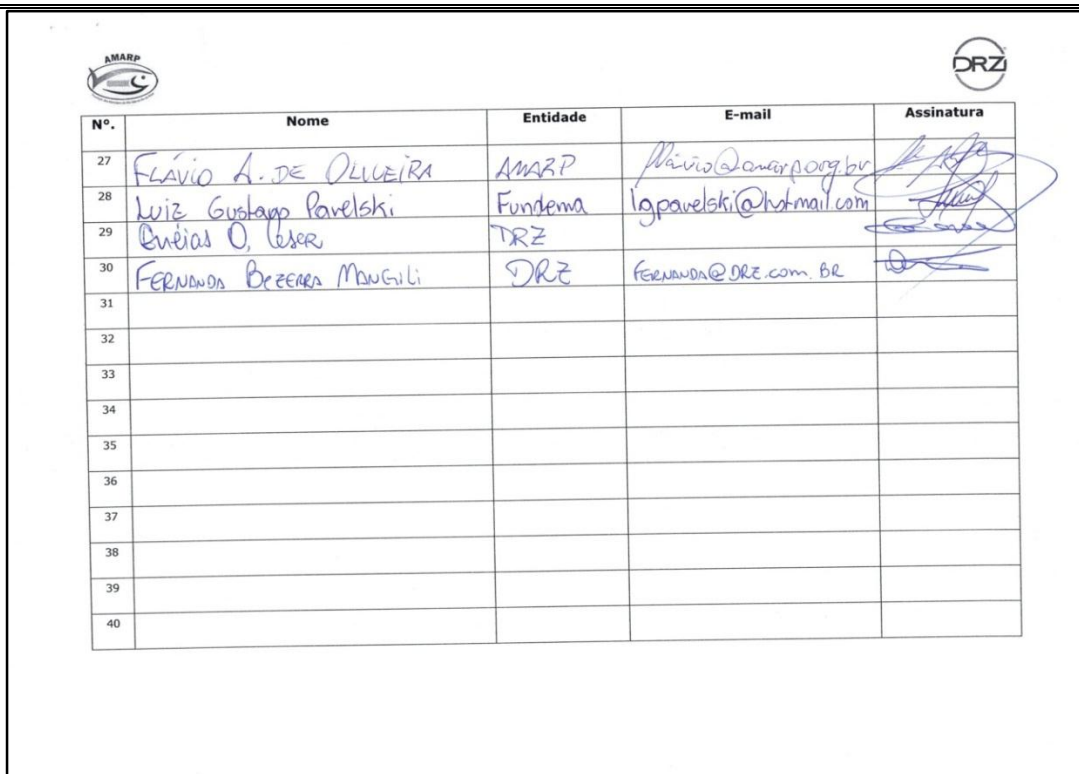 AMARP
DRZ
Nº. Nome Entidade E-mail Assinatura
27 FLÁVIO A. DE OLIVEIRA AMARP flavio@amarp.org.br
28 Luiz Gustavo Pavelski Fundema lgpavelski@hotmail.com
29 Enéias O. Cesar DRZ
30 FERNANDA BEZERRA MANGILI DRZ FERNANDA@DRZ.COM.BR
31
32
33
34
35
36
37
38
39
40